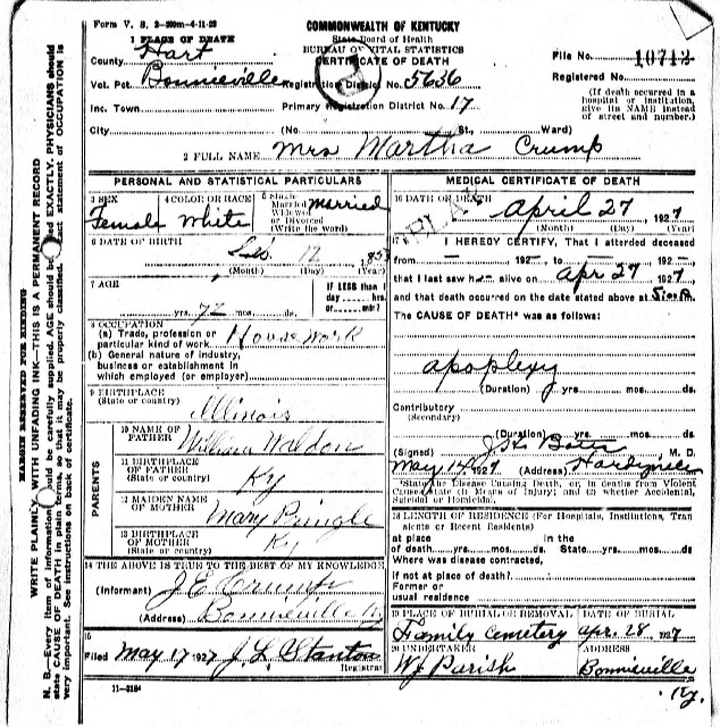 Form V. S. 2-200m-4-11-22
COMMONWEALTH OF KENTUCKY
State Board of Health
BUREAU OF VITAL STATISTICS
CERTIFICATE OF DEATH
1 PLACE OF DEATH
County Hart
Vot. Pct. Bonnieville Registration District No. 5636
Inc. Town Primary Registration District No. 17
City (No. St., Ward)
File No. 10712
Registered No.
(If death occurred in a
hospital or institution,
give its NAME instead
of street and number.)
2 FULL NAME Mrs Martha Crump
PERSONAL AND STATISTICAL PARTICULARS
3 SEX
Female
4 COLOR OR RACE
White
5 Single
Married
Widowed
or Divorced
(Write the word)
Married
6 DATE OF BIRTH
12
(Month) (Day) (Year)
7 AGE
72 yrs. mos. ds.
IF LESS than 1
day hrs.
or min?
8 OCCUPATION
(a) Trade, profession or
particular kind of work House Work
(b) General nature of industry,
business or establishment in
which employed (or employer)
9 BIRTHPLACE
(State or country)
Illinois
PARENTS
10 NAME OF
FATHER
William Waldon
11 BIRTHPLACE
OF FATHER
(State or country)
Ky
12 MAIDEN NAME
OF MOTHER
Mary Pringle
13 BIRTHPLACE
OF MOTHER
(State or country)
Ky
14 THE ABOVE IS TRUE TO THE BEST OF MY KNOWLEDGE
(Informant) J E Crump
(Address) Bonnieville Ky
15
Filed May 17 1927 J L Stanton
Registrar
11-3184
MEDICAL CERTIFICATE OF DEATH
16 DATE OF DEATH
April 27, 1927
(Month) (Day) (Year)
17 I HEREBY CERTIFY, That I attended deceased
from 192 , to 192
that I last saw h alive on Apr 27 1927,
and that death occurred on the date stated above at
The CAUSE OF DEATH* was as follows:
apoplexy
(Duration) yrs. mos. ds.
Contributory
(Secondary)
(Duration) yrs. mos. ds.
(Signed) M. D.
May 14 1927 (Address)
*State the Disease Causing Death, or, in deaths from Violent
Causes, state (1) Means of Injury; and (2) whether Accidental,
Suicidal or Homicidal.
18 LENGTH OF RESIDENCE (For Hospitals, Institutions, Tran
sients or Recent Residents)
at place in the
of death yrs. mos. ds. State yrs. mos. ds
Where was disease contracted,
if not at place of death?
Former or
usual residence
19 PLACE OF BURIAL OR REMOVAL
Family Cemetery
DATE OF BURIAL
Apr. 28, 1927
20 UNDERTAKER
W J Parish
ADDRESS
Bonnieville
Ky.
MARGIN RESERVED FOR BINDING
WRITE PLAINLY WITH UNFADING INK—THIS IS A PERMANENT RECORD
N. B.—Every item of information should be carefully supplied. AGE should be stated EXACTLY. PHYSICIANS should
state CAUSE OF DEATH in plain terms, so that it may be properly classified. Exact statement of OCCUPATION is
very important. See instructions on back of certificate.